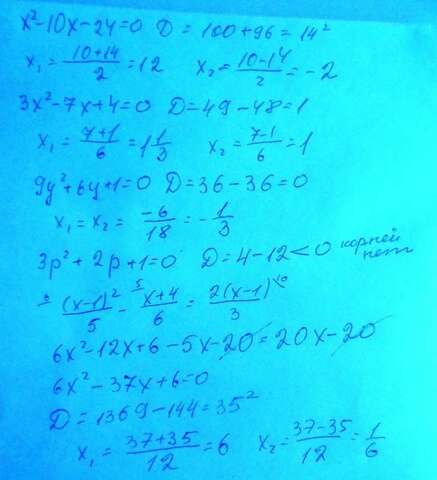 x²-10x-24=0 D = 100+96 = 14²
x₁ = (10+14)/2 = 12 x₂ = (10-14)/2 = -2
3x²-7x+4=0 D=49-48=1
x₁ = (7+1)/6 = 1 1/3 x₂ = (7-1)/6 = 1
9y²+6y+1=0 D=36-36=0
x₁ = x₂ = -6/18 = -1/3
3p²+2p+1=0 D=4-12<0 корней нет
⁶ (x-1)²/5 - ⁵ (x+4)/6 = 2(x-1)/3 ¹⁰
6x²-12x+6-5x-20=20x-20
6x²-37x+6=0
D = 1369-144=35²
x₁ = (37+35)/12 = 6 x₂ = (37-35)/12 = 1/6